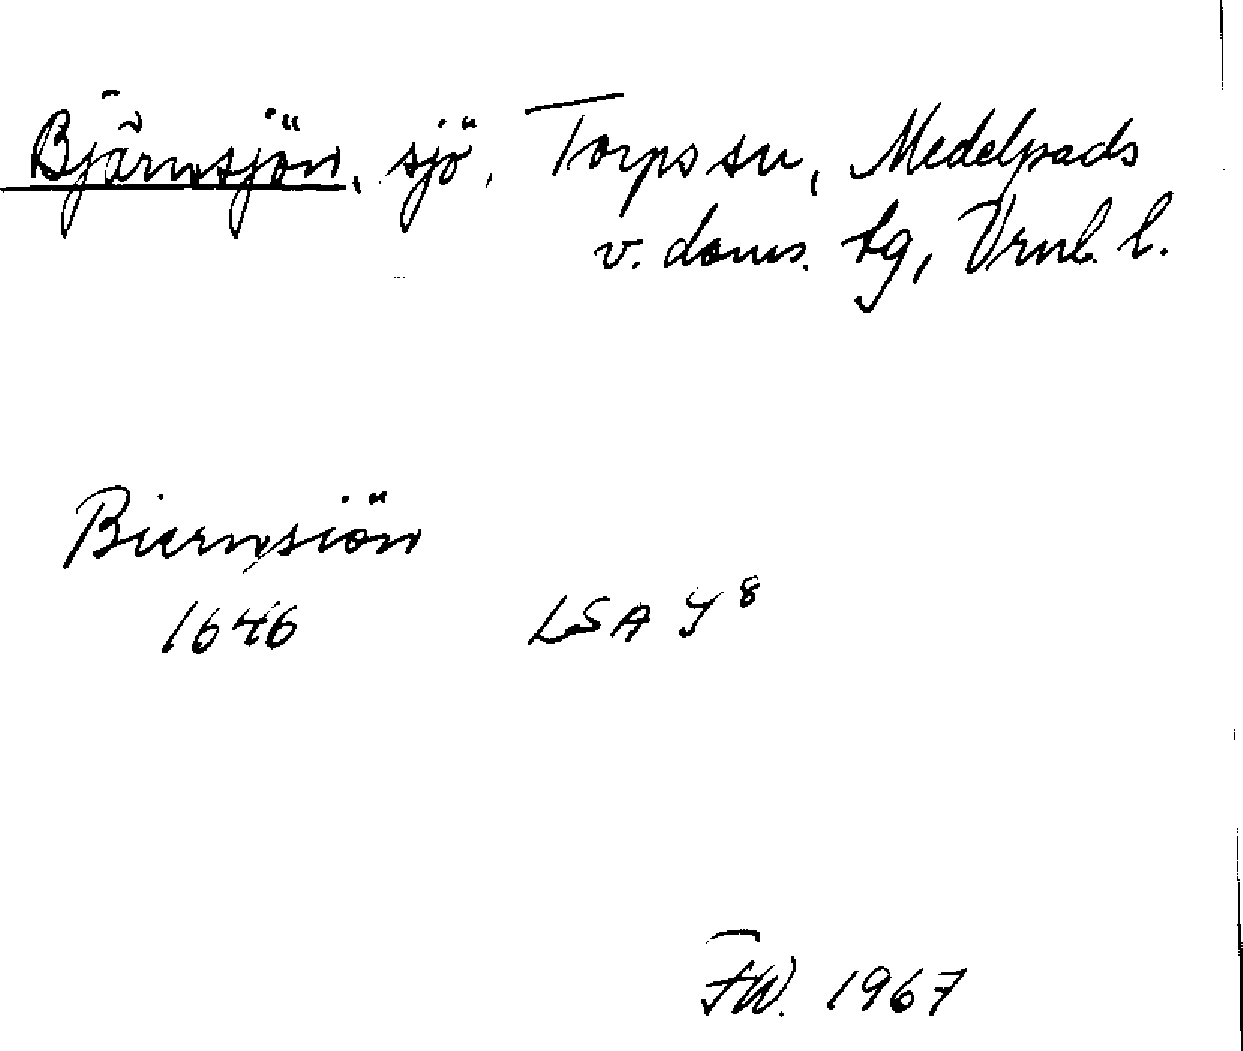 Bjärnsjön, sjö, Torps sn, Medelpads
v. doms. tg, Vrnl. l.
Biernsiön
1646 LSA Y8
FW. 1967